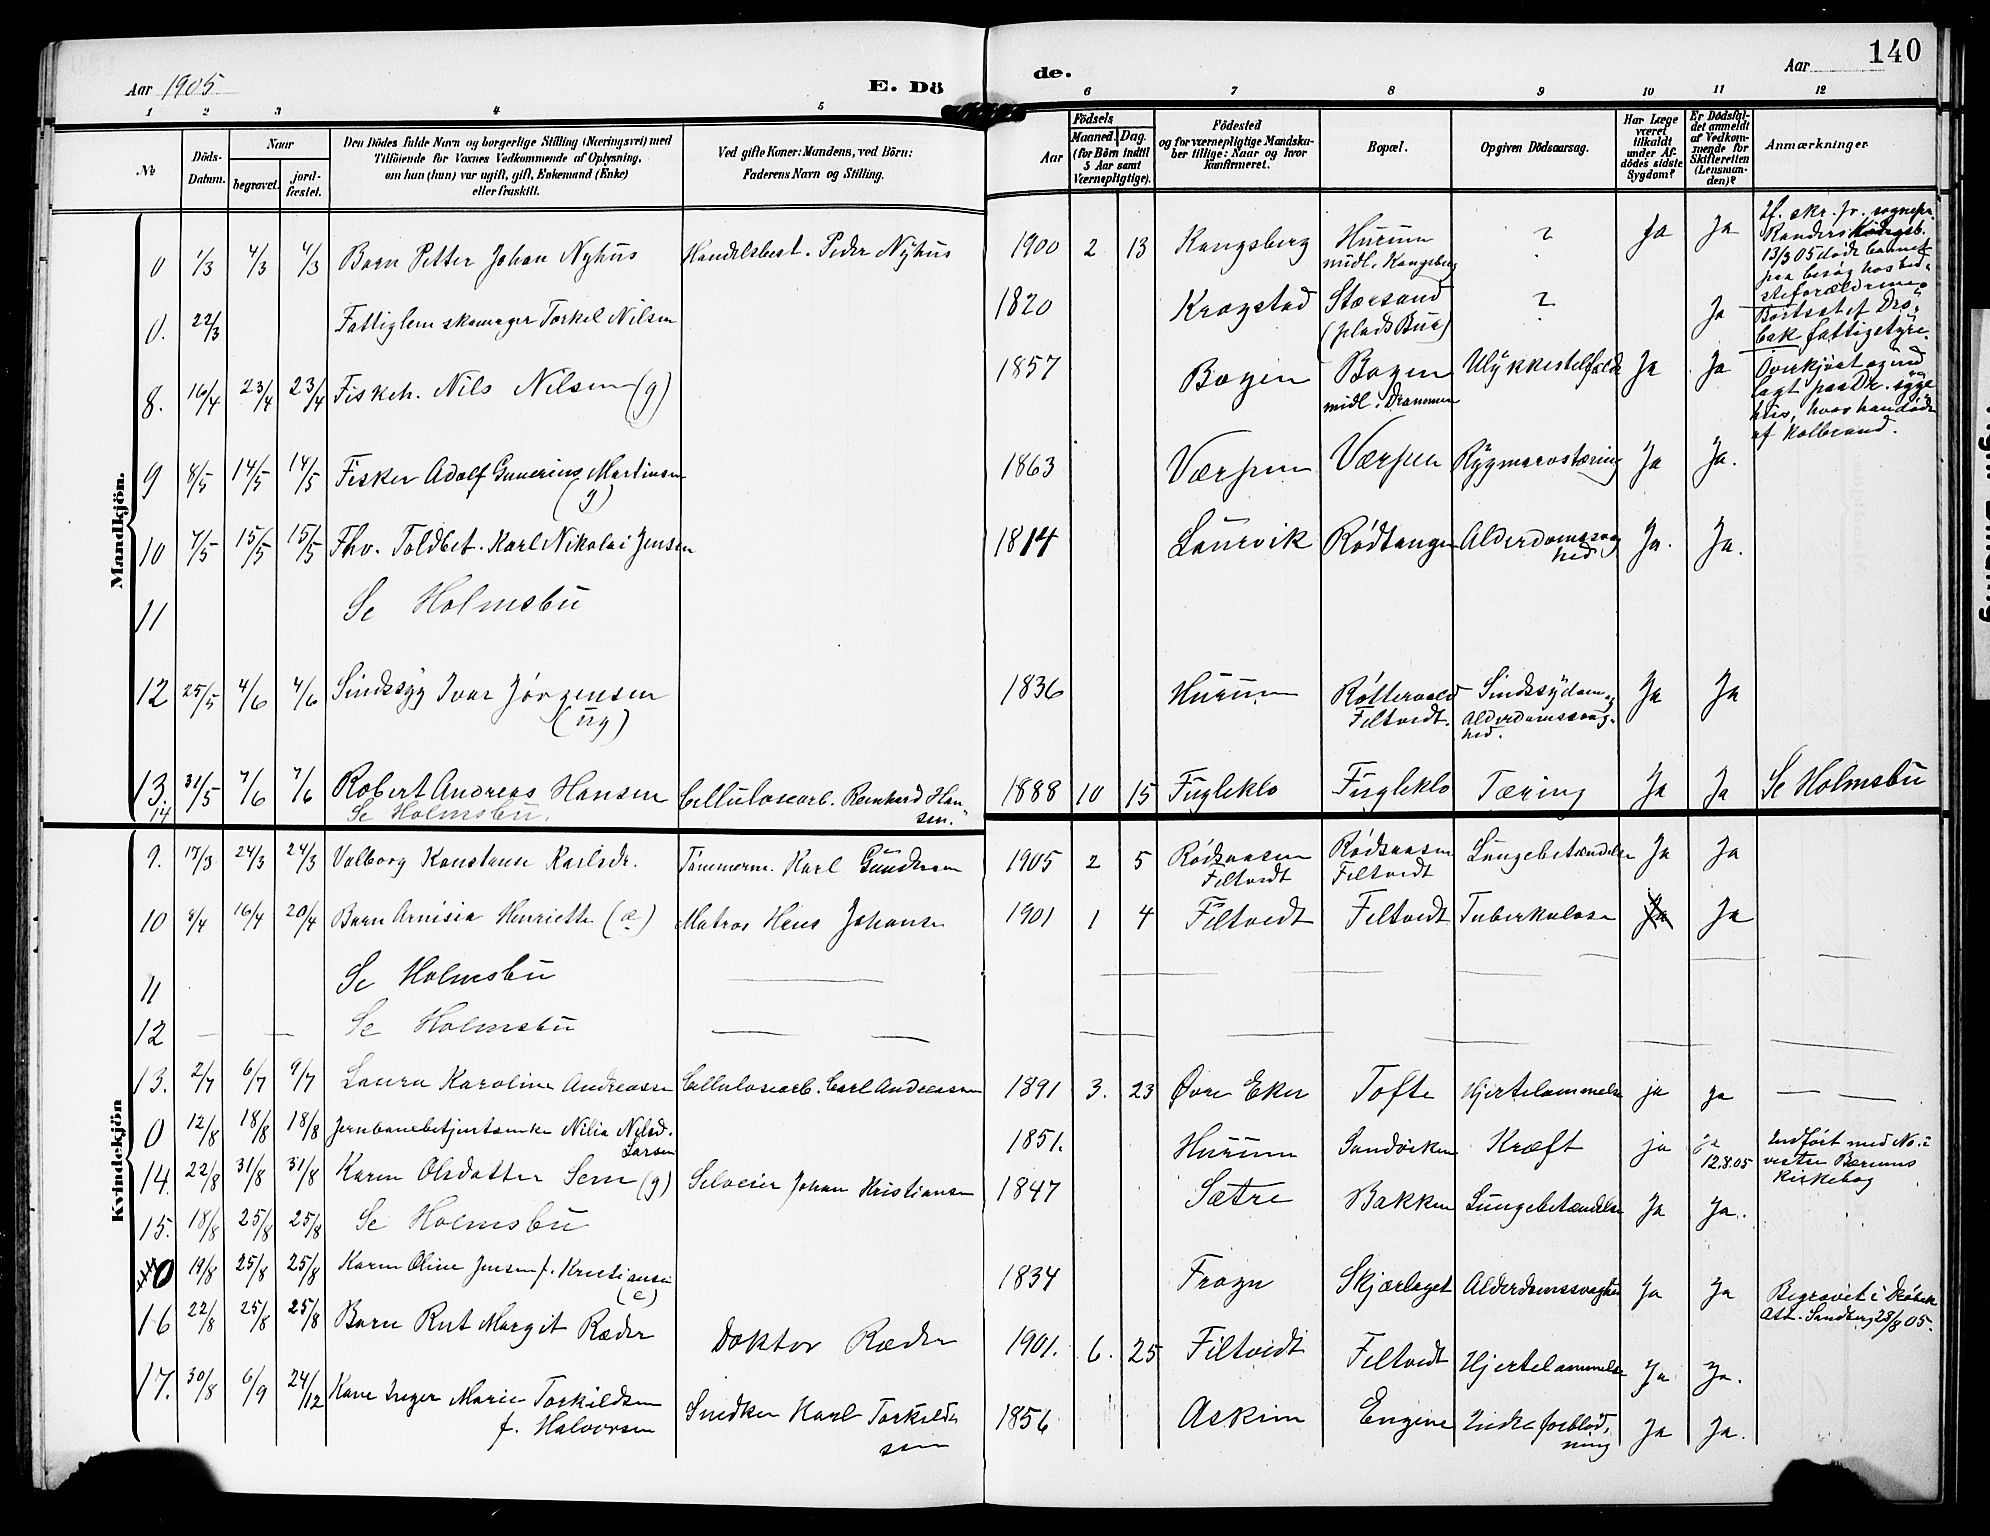 Aar 1905
E. Dö
de.
Aar
140
1 2 3 4 5 6 7 8 9 10 11 12
No
Döds-
Datum.
Naar
begravet.
jord-
fæstet.
Den Dödes fulde Navn og borgerlige Stilling (Næringsvei) med
Tilföiende for Voxnes Vedkommende af Oplysning,
om hun (hun) var ugift, gift, Enkemand (Enke)
eller fraskilt.
Ved gifte Koner: Mandens, ved Börn:
Faderens Navn og Stilling.
Födsels
Aar
Maaned. Dag.
(for Börn indtil
5 Aar samt
Værnepligtige).
Födested
og for værnepligtige Mandska-
ber tillige: Naar og hvor
konfirmeret.
Bopæl.
Opgiven Dödsaarsag.
Har Læge
været
tilkaldt
under Af-
dödes sidste
Sygdom?
Er Dödsfal-
det anmeldt
af Vedkom-
mende for
Skifteretten
(Lensman-
den)?
Anmærkninger
Mandkjön.
0 1/3 4/3 4/3 Barn Petter Johan Nyhus Handelsbest. Peder Nyhus 1900 2 13 Kongsberg Hurum
midl. Kongsberg ? Ja Ja
13/3 05 døde barnet
paa besøg hos bed-
steforældrene.
0. 22/3 Fattiglem skomager Torkel Nilsen 1820 Krogstad Storsand
(plads Bua) ? Ja Bortsat af Drø-
bak fattigstyre.
8. 16/4 23/4 23/4 Fiskeh. Nils Nilsen (g) 1857 Bogen Bogen
midl. i Drammen Ulykkestilfælde Ja Ja Overkjørt og ind
lagt paa Dr. syge
hus, hvor han døde
af kolbrand.
9 8/5 14/5 14/5 Fisker Adolf Gunerius Martinsen
(g) 1863 Værpen Værpen Rygmarvstæring Ja Ja.
10 7/5 15/5 15/5 Fhv. Toldbet. Karl Nikolai Jensen 1814 Laurvik Rødtangen Alderdomssvag
hed. Ja. Ja.
11 Se Holmsbu
12 25/5 4/6 4/6 Sindssyg Ivar Jörgensen
(ug) 1836 Hurum Røttervold
Filtvedt. Sindssydom og
Alderdomssvag-
hed. Ja Ja
13. 31/5 7/6 7/6 Robert Andreas Hansen Cellulosearb. Reinhard Han-
sen. 1888 10 15 Fugleklo Fugleklo Tæring Ja Ja Se Holmsbu
14 Se Holmsbu.
Kvindekjön
9. 17/3 24/3 24/3 Valborg Konstanse Karlsdr. Tömmerm. Karl Gundersen 1905 2 5 Rødsaasen
Filtvedt Rødsaasen
Filtvedt Lungebetændelse Ja Ja
10 8/4 16/4 20/4 Barn Arnisia Henriette Matros Hans Johansen 1901 1 4 Filtvedt Filtvedt Tuberkulose Ja Ja
11 Se Holmsbu
12 Se Holmsbu
13. 2/7 6/7 9/7 Laura Karoline Andreassen Cellulosearb. Carl Andreassen 1891 3. 23 Øvre Eker Tofte Hjertelammelse ja ja
0 12/8 18/8 18/8 Jernbanebetjentsenke Nilia Nilsd.
Larsen 1851. Hurum Sandviken Kræft ja Ja
12.8.05 Indført med No.
vestre Bærums
Kirkebog
14. 22/8 31/8 31/8 Karen Olsdatter Sem (g) Selveier Johan Kristiansen 1847 Sætre Bakken Lungebetændelse Ja Ja.
15. 18/8 25/8 25/8 Se Holmsbu
0 19/8 25/8 25/8 Karen Oline Jensen f. Kristiansen
(e) 1834 Frogn Skjærlaget Alderdomssvaghed Ja Ja Begravet i Drøbak
Att. Sandberg 28/8 05.
16 22/8 25/8 25/8 Barn Rut Margit Ræder Doktor Ræder 1901. 6. 25 Filtvedt Filtvedt Hjertelammelse Ja Ja.
17. 30/8 6/9 24/12 Kone Inger Marie Torkildsen
f. Halvorsen Snedker Karl Torkild-
sen 1856 Askim Engene Indre forblød-
ning Ja Ja.